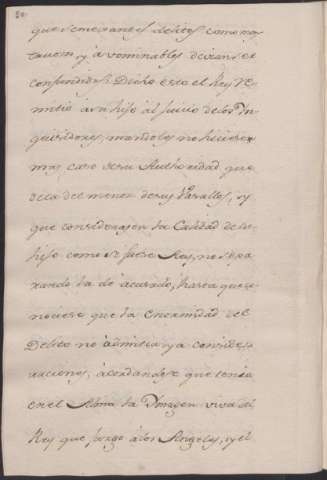 que semejantes delitos como no
tauem, y à vominables deixan ser
confundidos. Dicho esto el Rey re
mitio à su hijo àl Juicio de los In
quisidores, mandoles no hiciesen
mas caso de su Authoridad que
de la del menor de sus Vasallos, y
que considerasen la Calidad de su
hijo como si fuese Rey, no sepa
rando la de àcusado, hasta que co
nociese que la Enormidad del
Delito no àdmitia ya conside
raciones, àcordandose que tenia
en el Alma la Ymagen viva del
Rey que juzgo à los Angeles, y el